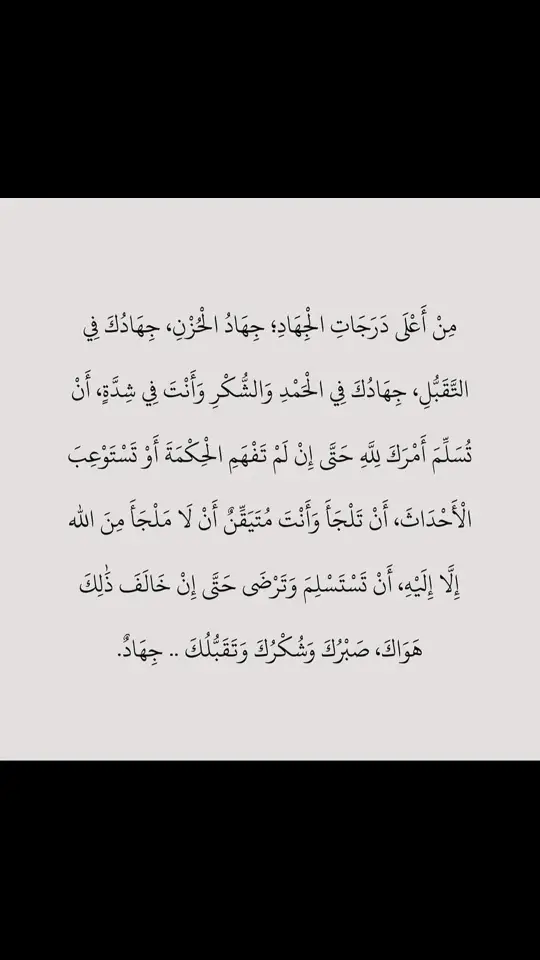 مِنْ أَعْلَى دَرَجَاتِ الْجِهَادِ؛ جِهَادُ الْحُزْنِ، جِهَادُكَ فِي
التَّقَبُّلِ، جِهَادُكَ فِي الْحَمْدِ وَالشُّكْرِ وَأَنْتَ فِي شِدَّةٍ، أَنْ
تُسَلِّمَ أَمْرَكَ لِلَّهِ حَتَّى إِنْ لَمْ تَفْهَمِ الْحِكْمَةَ أَوْ تَسْتَوْعِبَ
الْأَحْدَاثَ، أَنْ تَلْجَأَ وَأَنْتَ مُتَيَقِّنٌ أَنْ لَا مَلْجَأَ مِنَ الله
إِلَّا إِلَيْهِ، أَنْ تَسْتَسْلِمَ وَتَرْضَى حَتَّى إِنْ خَالَفَ ذَٰلِكَ
هَوَاكَ، صَبْرُكَ وَشُكْرُكَ وَتَقَبُّلُكَ .. جِهَادٌ.